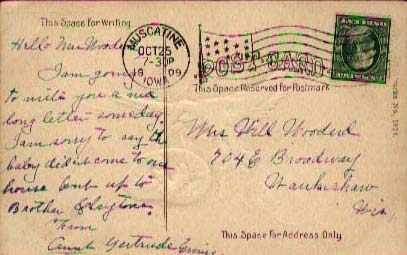 This Space for Writing.
Hello Mrs Wooderd
I am going
to write you a nice
long letter someday.
I am sorry to say the
baby did not come to our
house but up to
Brother Claytons.
From
Aunt Gertrude
MUSCATINE
OCT 25
7-30P
09
IOWA
POST CARD
This Space Reserved for Postmark
Mrs Will Wooderd
704 E Broadway
Waukishaw
Wis.
This Space for Address Only